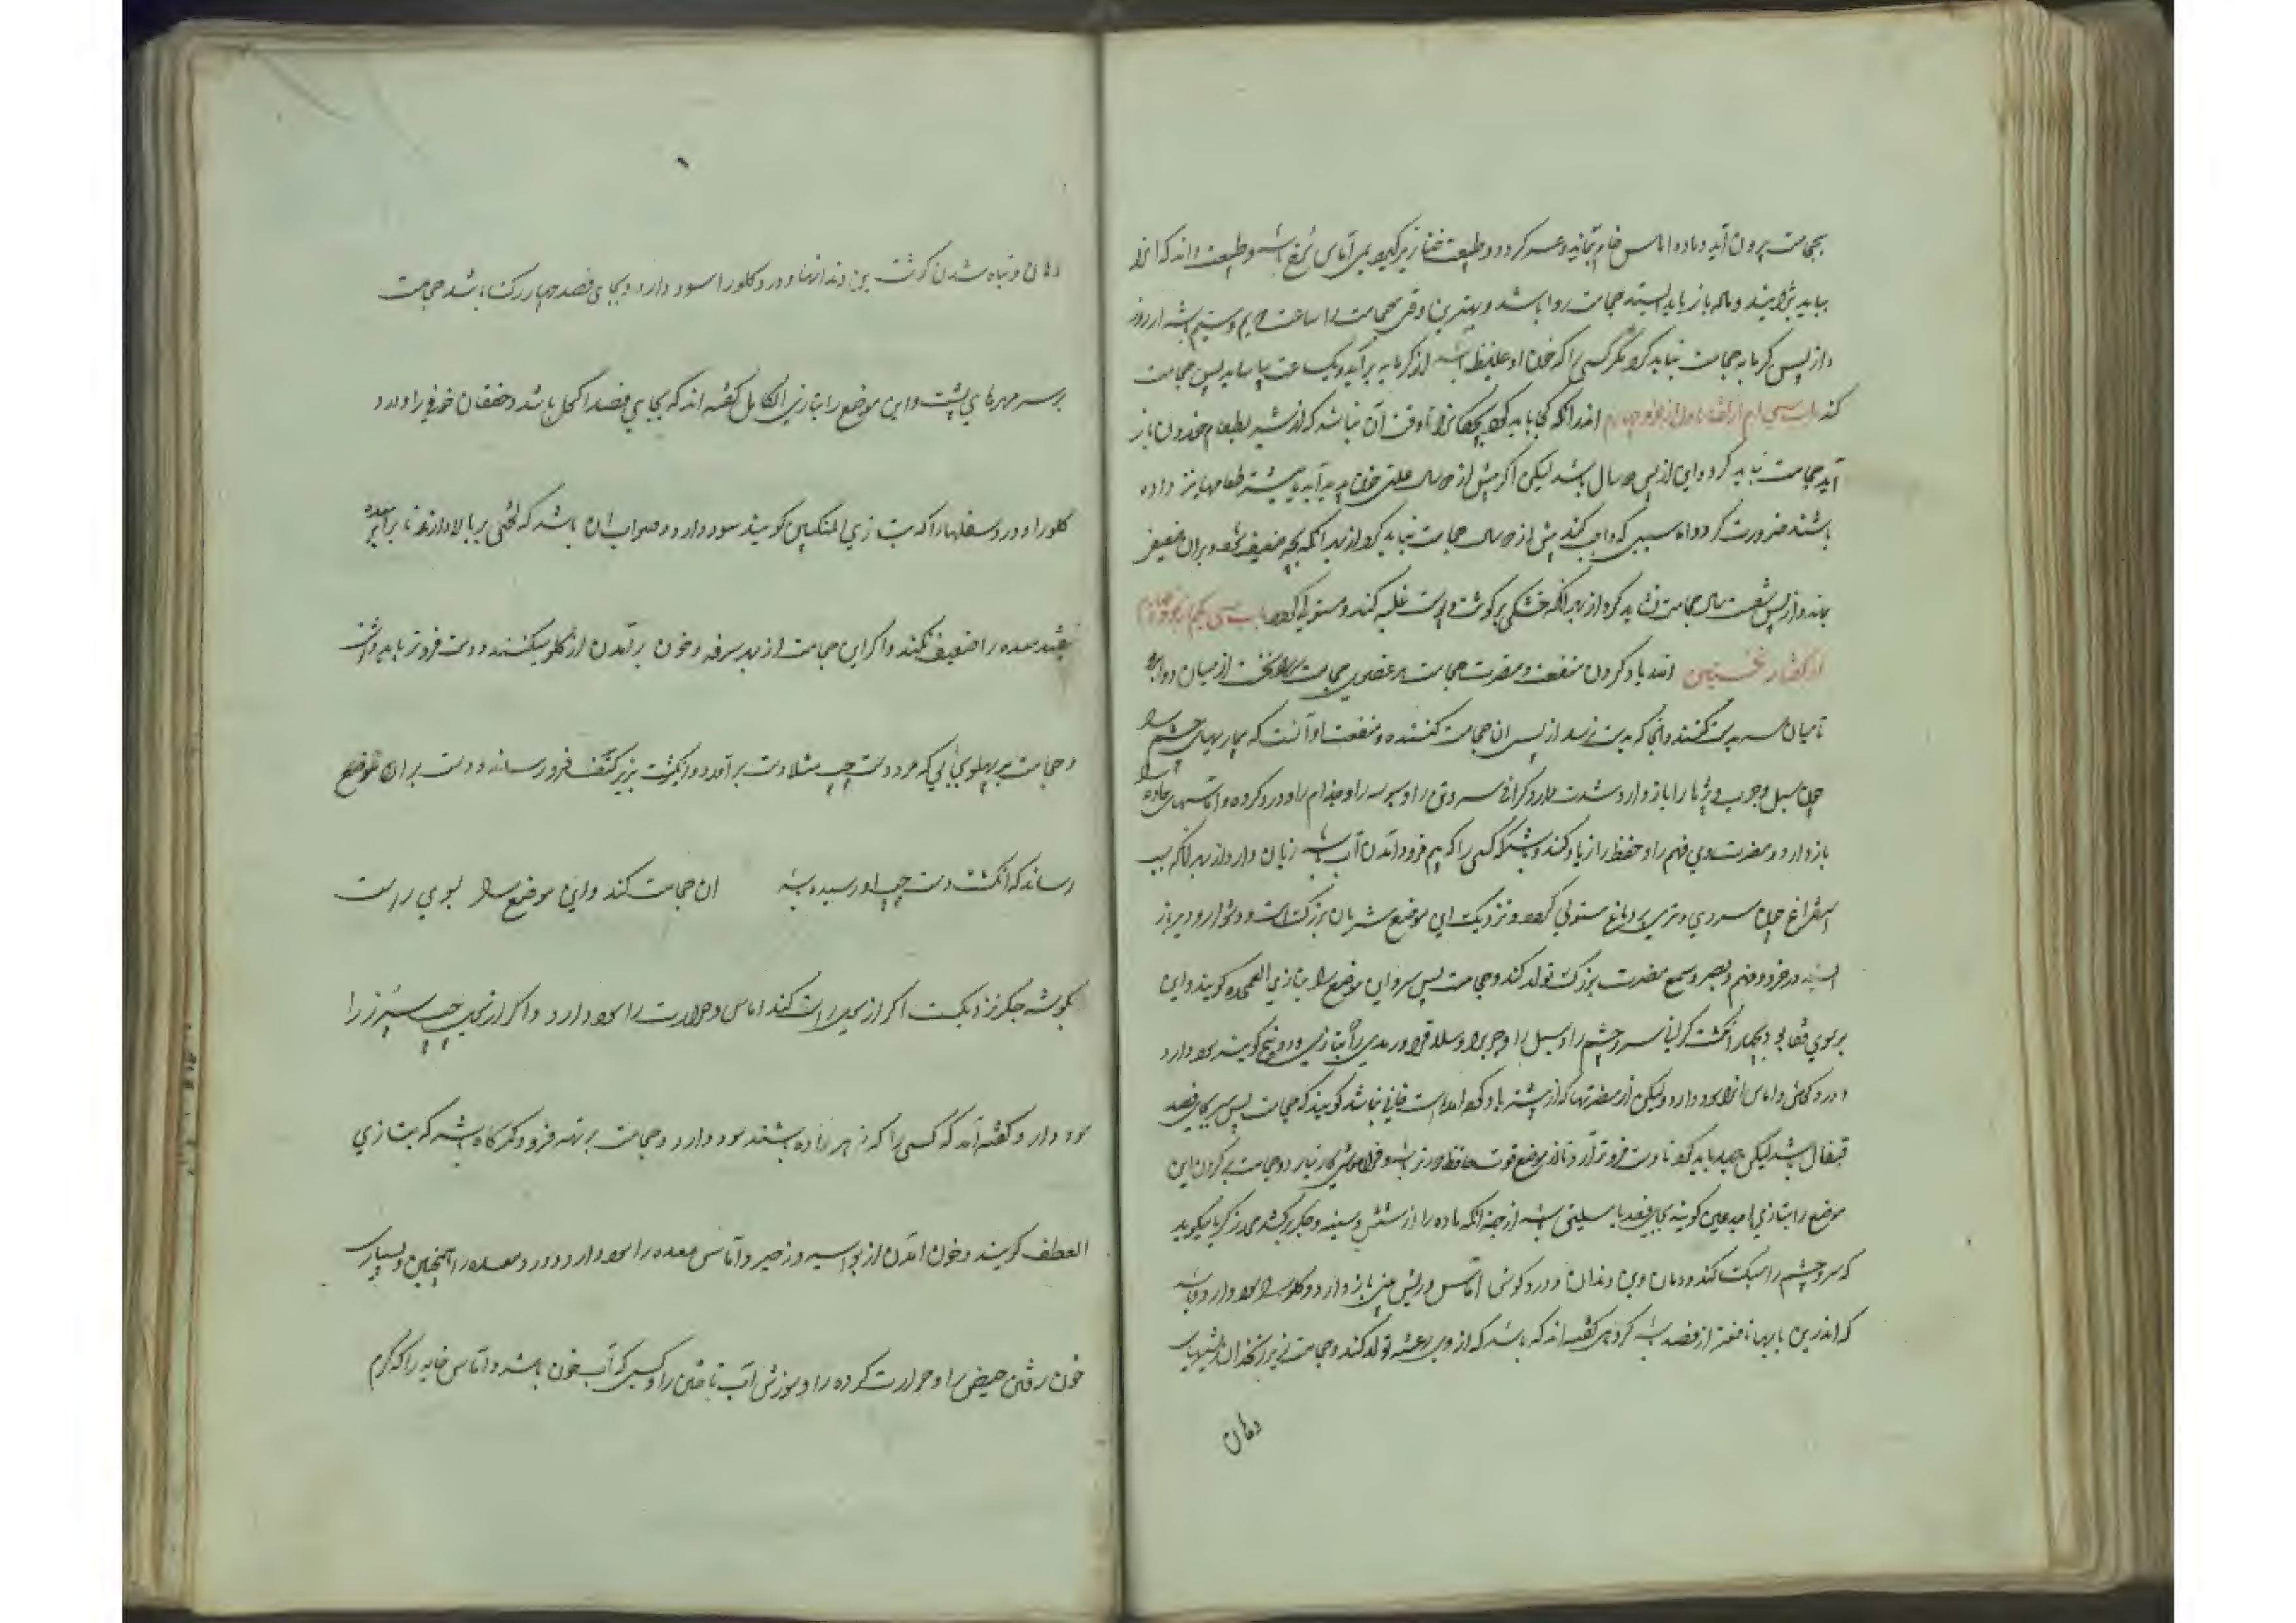 بحجامت بیرون آید و ماده اماس خام بماند و عسر کردد و طبیعت خنازیر کیرد بی آماس نرخ باشد و طبیعت داند که انرا
بباید پزانیند و ماله باز باید ایستد حجامت روا باشد و بهترین وقتی حجامت را ساعت دویم و سیم باشد از روز
و از پس کرمابه حجامت نباید کرد مکر کسی را که خون او غلیظ باشد از کرمابه برآید و یک ساعت بیاساید پس حجامت
کند باب سی ام از کفتار اول از جزو چهارم اندر آنکه کجا باید کرد بچکانرا تا وقت آن نباشد که از شیر بطعام خوردن باز
آید حجامت نباید کرد و این از پس دو سال باشد لیکن اکر پیش از دو سال علتی خونی پدید آید یا بیشتر طعامها نیز داده
باشند ضرورت کردد اما سببی که واجب کند پیش از دو سال حجامت نباید کرد از بهر آنکه بچه ضعیف شود و بران ضعیفی
بماند و از پس شصت سال حجامت نشاید کرد از بهر آنکه خشکی بر کوشت و پوست غلبه کند و مستولی کردد باب سی یکم از جزو چهارم
از کفتار نخستین اندر یاد کردن منفعت و مضرت حجامت هر عضوی حجامت سر نخست از میان دو ابرو
تا میان سر بدست کنند و آنجا که بدست رسد از پس ان حجامت کنند و منفعت او آنست که بیماریهای چشم را
چون سبل و جرب و پژها را باز دارد و شدت دارد کرانی سر و تن را و سبوسه را و جذام را و درد کرده و آماسهای حاده را
باز دارد و مضرت وی فهم را و حفظ را زیاد کند و شبکه کسی را که بیم فرود آمدن آب باشد زیان دارد از بهر آنکه بسبب
استفراغ چون سردی و تری بر دماغ مستولی کردد و نزدیک این موضع شریان بزرکست و دشوار و دیر باز
ایستد در خرد و فهم و بصر و سمع مضرت بزرک تولد کند و حجامت پس سر و این موضع را بتازی القمحدوه کویند و این
بر سوی قفا بود بچهار انکشت کرانی سر و چشم را و سبل را و جرب را و سلاق را و رمدی را که بتازی وردینج کویند سود دارد
و درد کلو و اماس انرا سود دارد ولیکن از مضرتها که از پیشتر یاد کرده آمد است خالی نباشد کویند که حجامت پس سر بجای فصد
قیفال باشد لیکن جهد باید کرد تا دست فروتر آرد تا از موضع قوت حافظه دورتر باشد و فراموشی کار نیارد و حجامت کردن این
موضع را بتازی اخدعین کویند بجای فصد باسلیق باشد از جهة آنکه ماده را از شش و سینه و جکر برکشد محمد زکریا میکوید
که سر و چشم را سبک کند و دهان و بن دندان و درد کوش و آماس و ریش بینی باز دارد و کلو را سود دارد و باشد
که اندرین بابها نافعتر از فصد باشد کروهی کفته اند که باشد که از وی رعشه تولد کند و حجامت زیر زنخدان ریشهای
دهان
دهان و تباه شدن کوشت بن دندانها و درد کلو را سود دارد و بجای فصد چهار رک باشد حجامت
بر سر مهرهای پشت و این موضع را بتازی الکاهل کفته اند که بجای فصد اکحل باشد و خفقان خونی را و درد
کلو را و درد سفلیها را که بتازی المنکبین کویند سود دارد و صواب ان باشد که لختی بر بالا دارند تا برابر معده
نیفتد معده را ضعیف نکند و اکر این حجامت از بهر سرفه و خون بر آمدن از کلو میکنند دست فروتر باید داشت
و حجامت بر پهلوی آنی که مرد دست چپ مثلا دست برآمد و انکشت بزیر کتف فرو رساند و دست بران موضع
رساند که انکشت دست چپ او رسیده باشد ان حجامت کند و این موضع را بسوی راست
بکوشه جکر نزدیکست اکر از سوی راست کند اماس و حرارت را سود دارد و اکر از سوی چپ سپرز را
سود دارد و کفته اند که کسی را که زهر داده باشند سود دارد و حجامت بر مهره فرود کمرکاه باشد که بتازی
العطف کویند و خون امدن از بواسیر و زحیر و آماس معده را سود دارد و درد معده را همچنین و بسیار
خون رفتن حیض را و حرارت کرده را و سوزش آب تاختن را و کسی که آب خون باشد و اماس خایه را که کرم